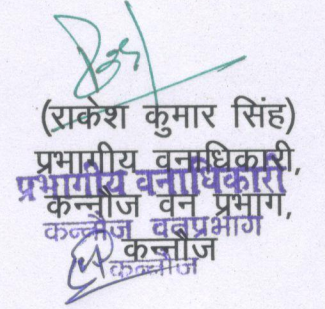 (राकेश कुमार सिंह)
प्रभागीय वनाधिकारी,
प्रभागीय वनाधिकारी
कन्नौज वन प्रभाग,
कन्नौज वनप्रभाग
कन्नौज
कन्नौज